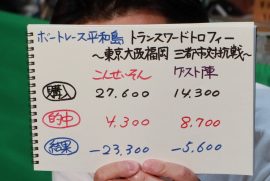 ボートレース平和島 トランスワードトロフィー
～東京大阪福岡 三都市対抗戦～
こんせいそん ゲスト陣
購入 27,600 14,300
的中 4,300 8,700
結果 -23,300 -5,600